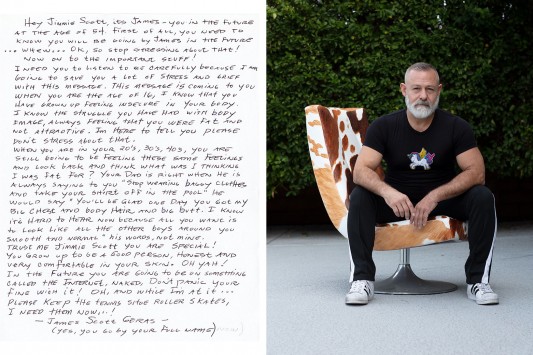 Hey Jimmie Scott, it's James - you in the future
at the age of 54. First of all, you need to
know you will be going by James in the future
... when... OK, so stop stressing about that!
Now on to the important stuff!
I need you to listen to me carefully because I am
going to save you a lot of stress and grief
with this message. This message is coming to you
when you are the age of 16, I know that you
have grown up feeling insecure in your body.
I know the struggle you have had with body
image, always feeling that you were fat and
not attractive. I'm here to tell you please
don't stress about that.
When you are in your 20's, 30's, 40's, you are
still going to be feeling these same feelings
and look back and think what was I thinking
I was fat for? Your dad is right when he is
always saying to you "Stop wearing baggy clothes
and take your shirt off in the pool" he
would say "you'll be glad one day you got my
big chest and body hair and big butt. I know
it's hard to hear now because all you want is
to look like all the other boys around you
smooth and normal" his words, not mine.
Trust me Jimmie Scott you are special!
You grow up to be a good person, honest and
very comfortable in your skin. Oh yah!
In the future you are going to be on something
called the internet, naked. Don't panic your
fine with it! Oh, and while I'm at it...
please keep the tennis shoe roller skates,
I need them now...!
- James Scott Geras -
(yes, you go by your full name)